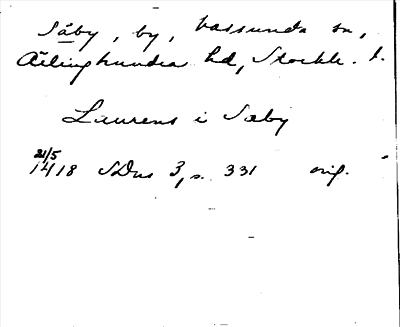 Såby, by, Vassunda sn,
Ärlinghundra hd, Stockh. l.
Laurens i Sæby
21/5
1418 SDns 3, s. 331 orig.